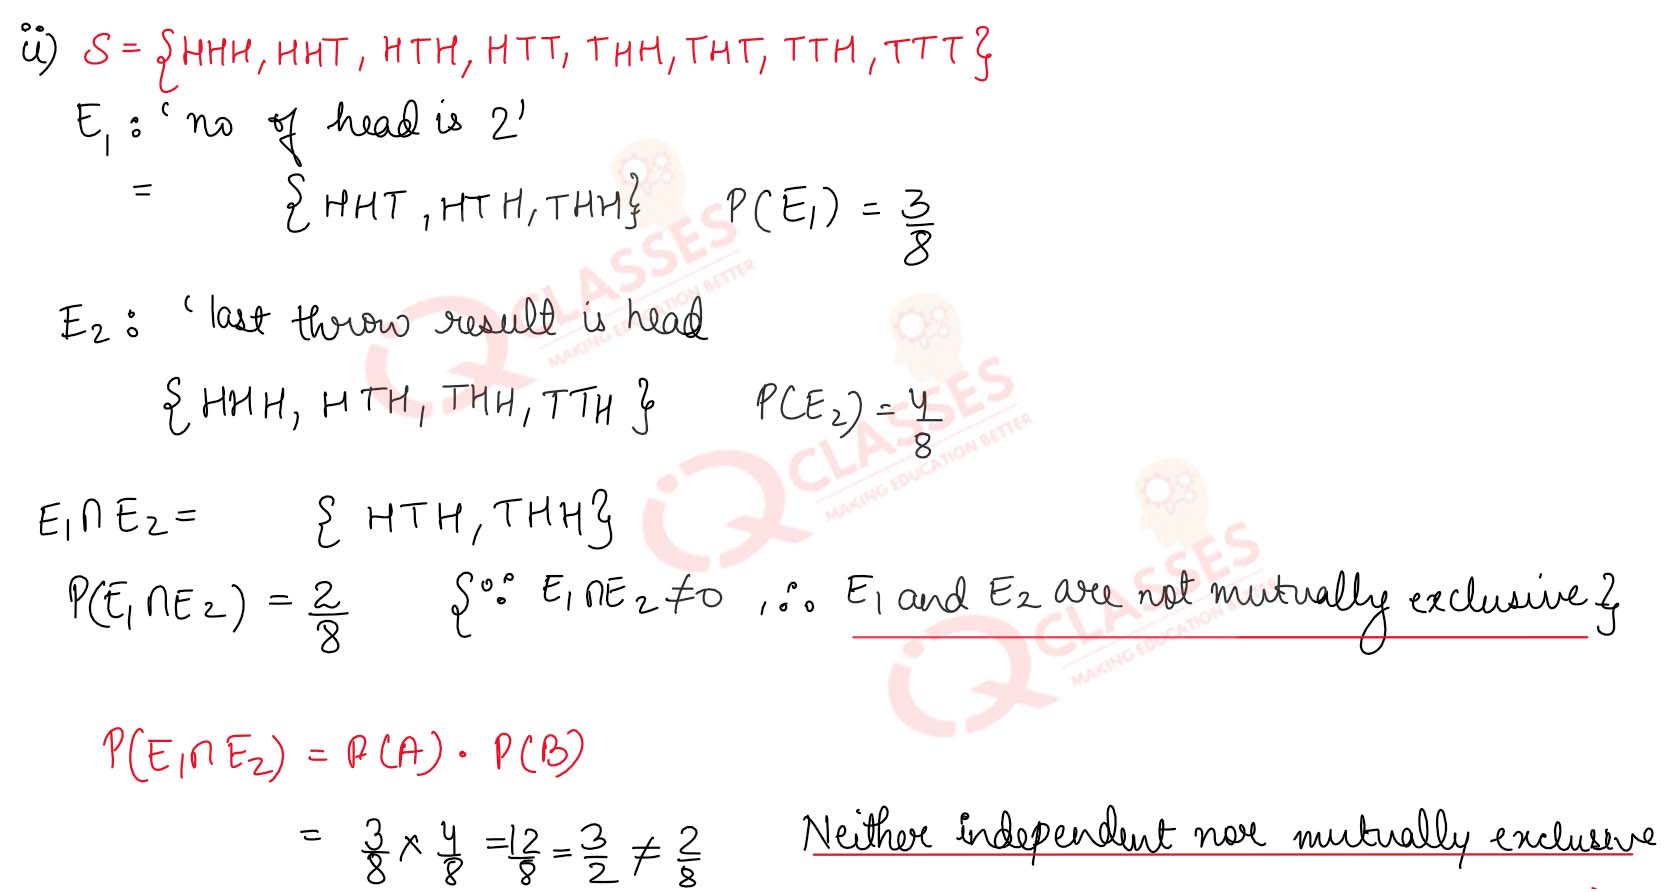 ii) S = {HHH, HHT, HTH, HTT, THH, THT, TTH, TTT}
E₁ : 'no of head is 2'
= {HHT, HTH, THH} P(E₁) = 3/8
E₂ : 'last throw result is head
{HHH, HTH, THH, TTH} P(E₂) = 4/8
E₁∩E₂ = {HTH, THH}
P(E₁∩E₂) = 2/8 {∵ E₁∩E₂ ≠ 0, ∴ E₁ and E₂ are not mutually exclusive}
P(E₁∩E₂) = P(A) · P(B)
= 3/8 × 4/8 = 12/8 = 3/2 ≠ 2/8 Neither independent nor mutually exclusive
iQ CLASSES
MAKING EDUCATION BETTER
iQ CLASSES
MAKING EDUCATION BETTER
iQ CLASSES
MAKING EDUCATION BETTER